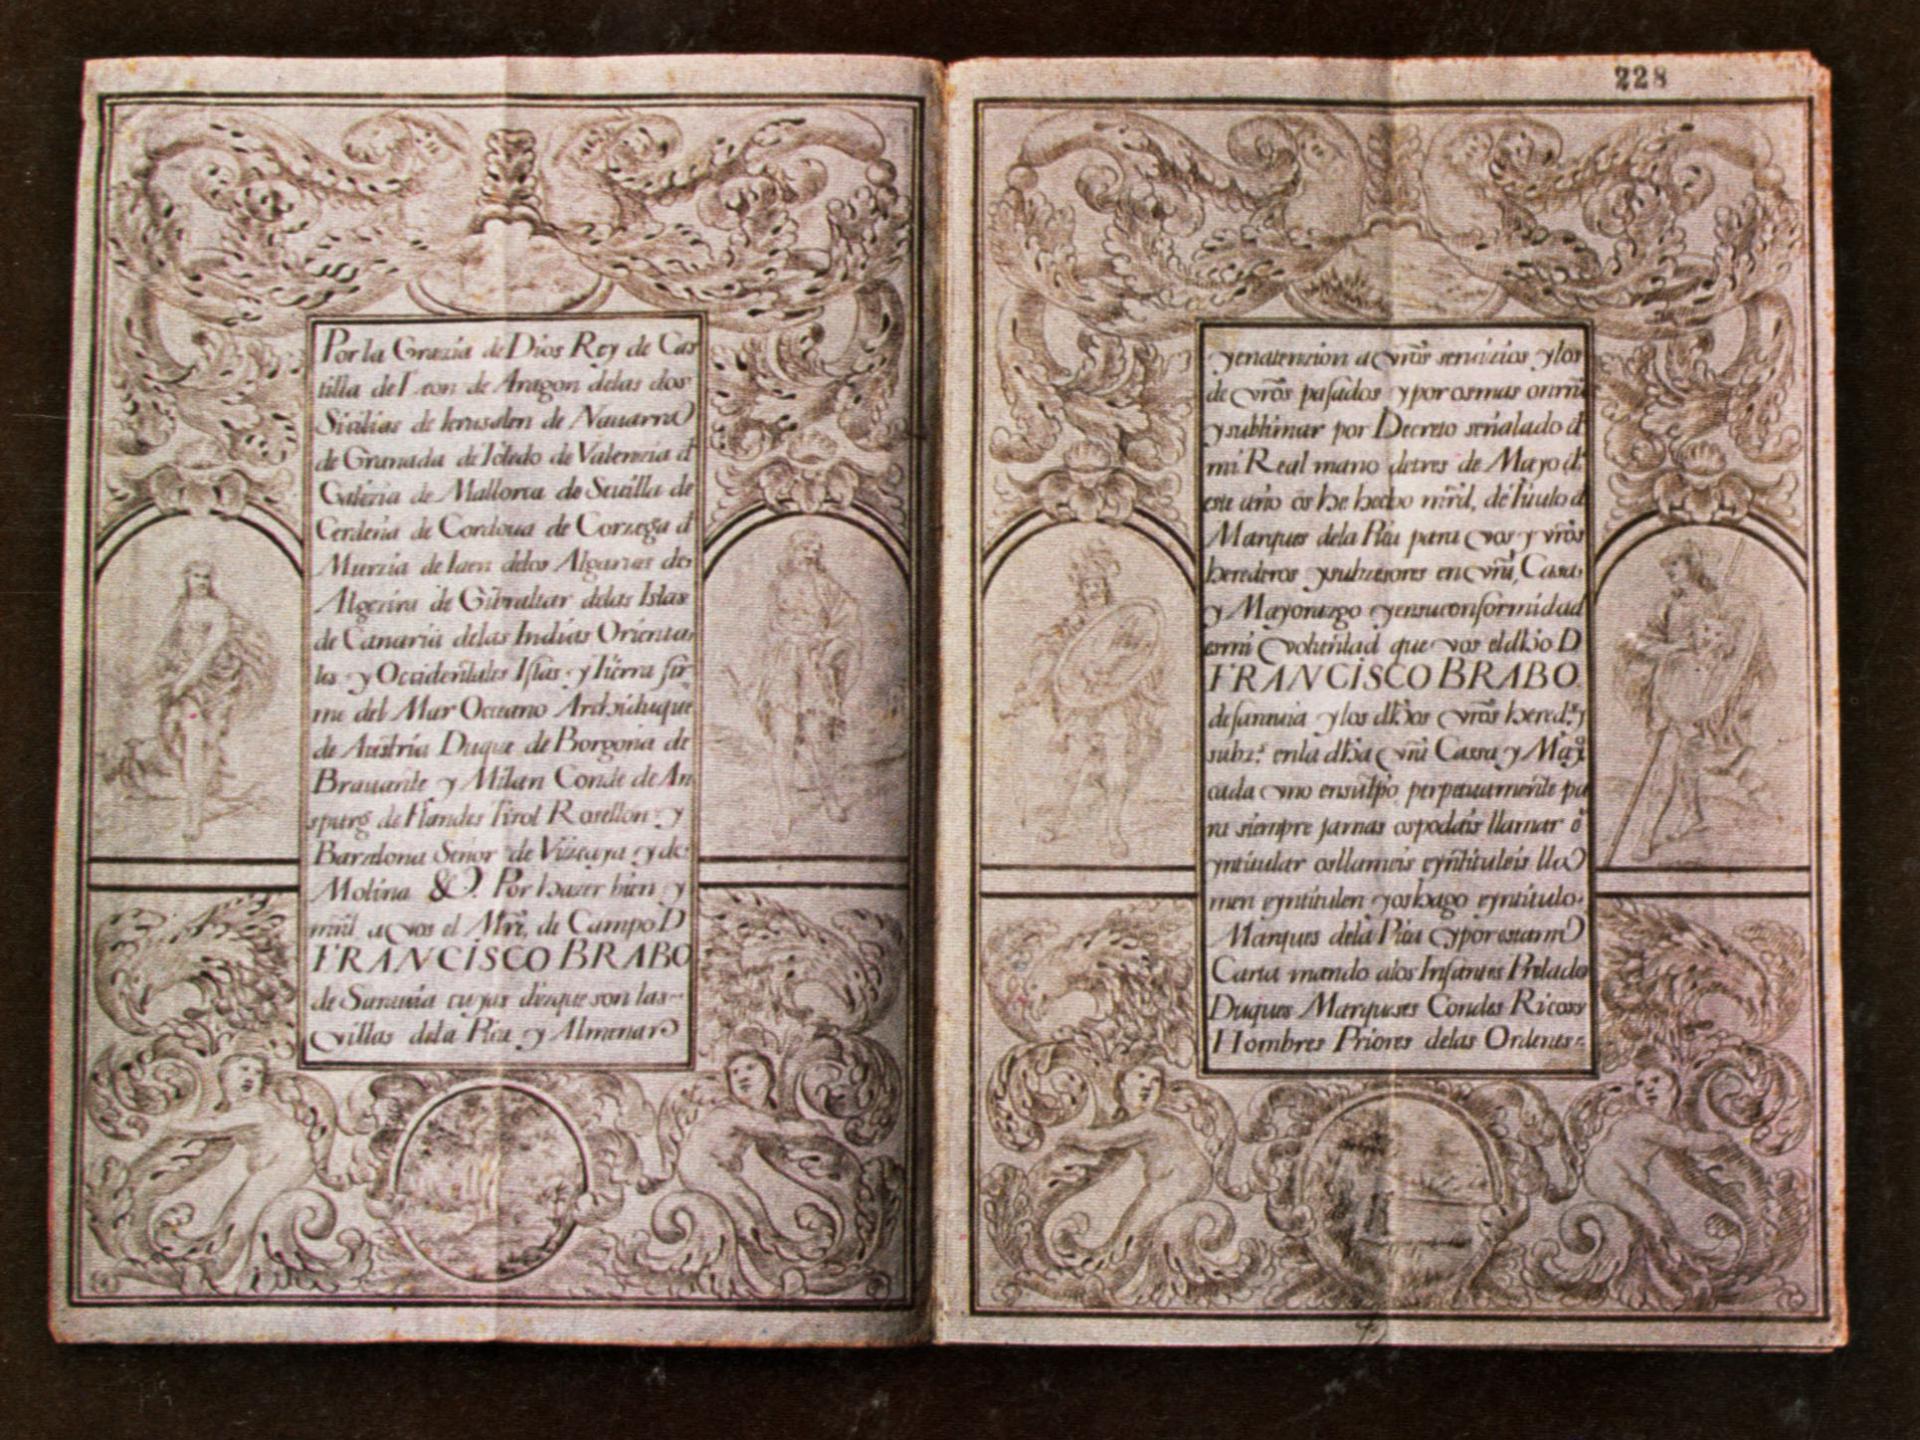 Por la Grazia de Dios Rey de Cas
tilla de Leon de Aragon delas dos
Sicilias de Ierusalen de Nauarra
de Granada de Toledo de Valencia d
Galizia de Mallorca de Seuilla de
Cerdeña de Cordoua de Corzega d
Murzia de Iaen delos Algarues de
Algezira de Gibraltar delas Islas
de Canaria delas Indias Orienta
les y Occidentales Islas y Tierra fir
me del Mar Occeano Archiduque
de Austria Duque de Borgoña de
Brauante y Milan Conde de An
spurg de Flandes Tirol Rosellon y
Barzelona Señor de Vizcaya y de
Molina &. Por hazer bien y
mrd a vos el Mre, de Campo D
FRANCISCO BRABO
de Sarauia cuyas dizque son las
villas dela Pica y Almenar
228
y enatenzion a vros seruizios y los
de vros pasados y por os mas onrrar
y sublimar por Decreto señalado d
mi Real mano de tres de Mayo d
este año os he hecho mrd, de Titulo d
Marques dela Pica para vos y vros
herederos y subzesores en vra, Casa
y Mayorazgo y ensuconformidad
es mi voluntad que vos el dho D
FRANCISCO BRABO
de sarauia y los dhos vros hered.s y
subz.s enla dha vra Cassa y May.o
cada vno ensutpo perpetuamente pa
ra siempre jamas os podais llamar o
yntitular os llameis eyntituleis lla
men eyntitulen y os hago eyntitulo
Marques dela Pica y por esta mi
Carta mando alos Infantes Prelados
Duques Marqueses Condes Ricos
Hombres Priores delas Ordenes